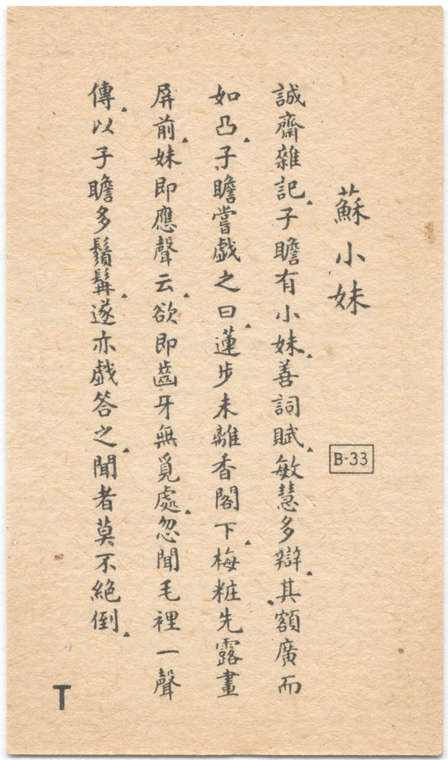 蘇小妹
B-33
誠齋雜記.子瞻有小妹.善詞賦.敏慧多辯.其額廣而
如凸.子瞻嘗戯之曰.蓮步未離香閣下.梅粧先露畫
屏前.妹即應聲云.欲即齒牙無覓處.忽聞毛裡一聲
傳.以子瞻多鬚髯.遂亦戯答之.聞者莫不絕倒.
T